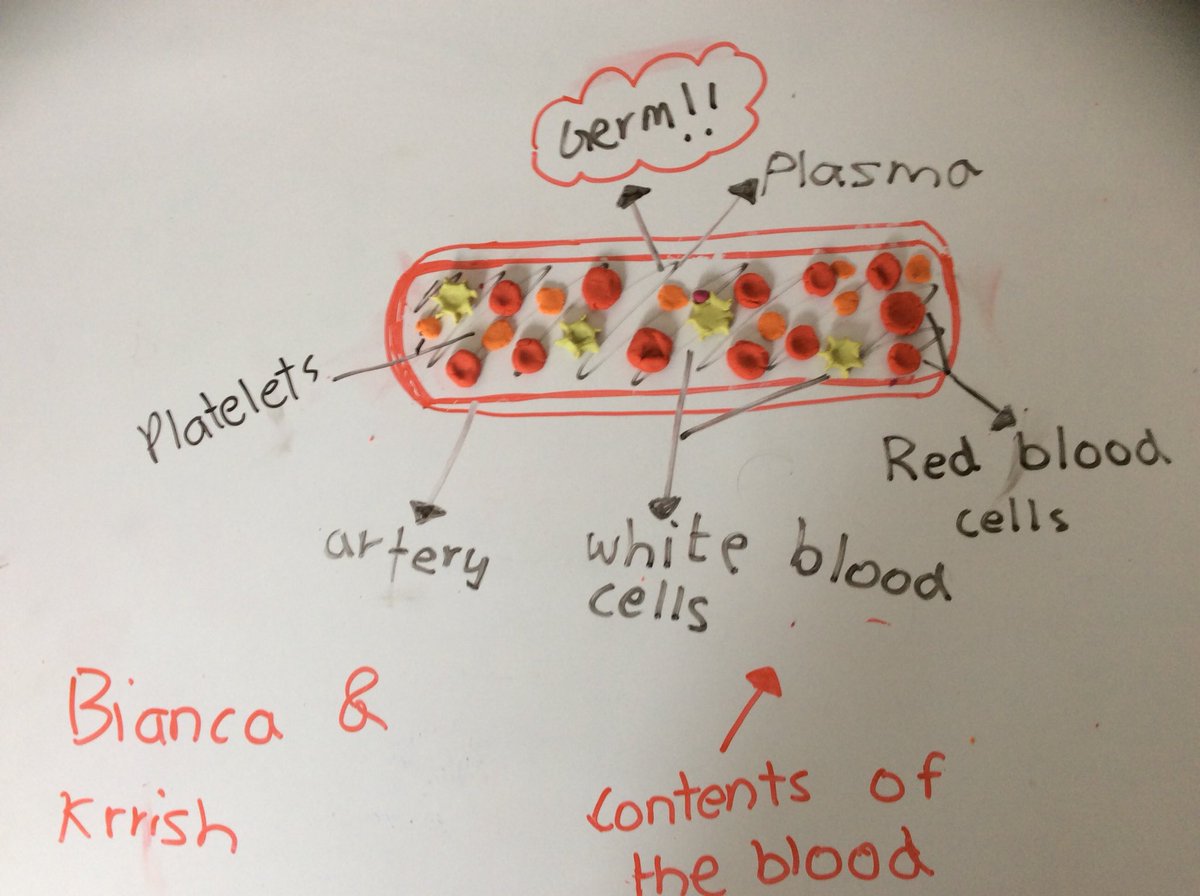 Germ!!
Plasma
Platelets
Red blood
cells
artery
white blood
cells
Bianca &
Krrish
contents of
the blood